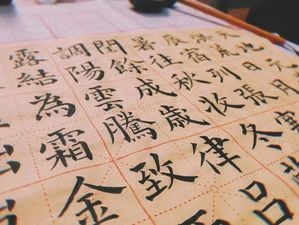 天地
洪荒日月
辰宿列張寒
暑往秋收冬
閏餘成歲律呂
調陽雲騰致
露結為霜金